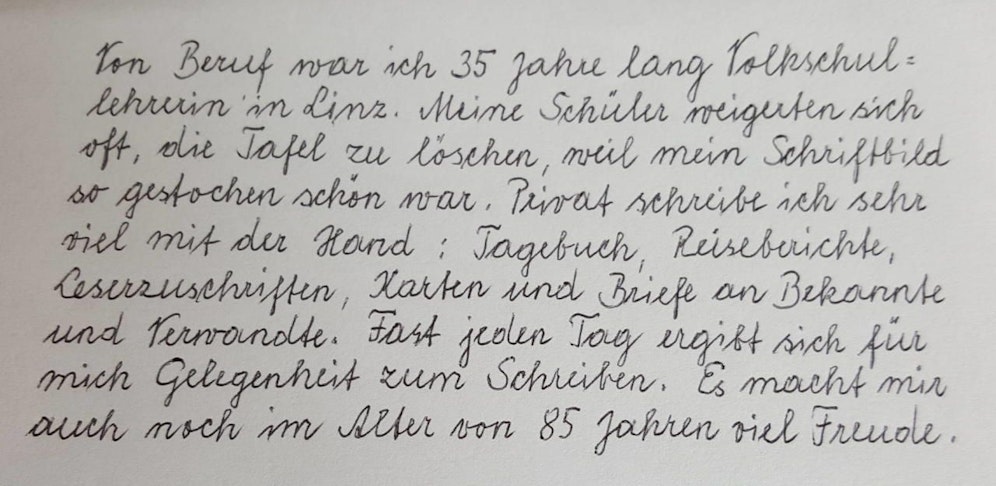 Von Beruf war ich 35 Jahre lang Volkschul=
lehrerin in Linz. Meine Schüler weigerten sich
oft, die Tafel zu löschen, weil mein Schriftbild
so gestochen schön war. Privat schreibe ich sehr
viel mit der Hand: Tagebuch, Reiseberichte,
Leserzuschriften, Karten und Briefe an Bekannte
und Verwandte. Fast jeden Tag ergibt sich für
mich Gelegenheit zum Schreiben. Es macht mir
auch noch im Alter von 85 Jahren viel Freude.